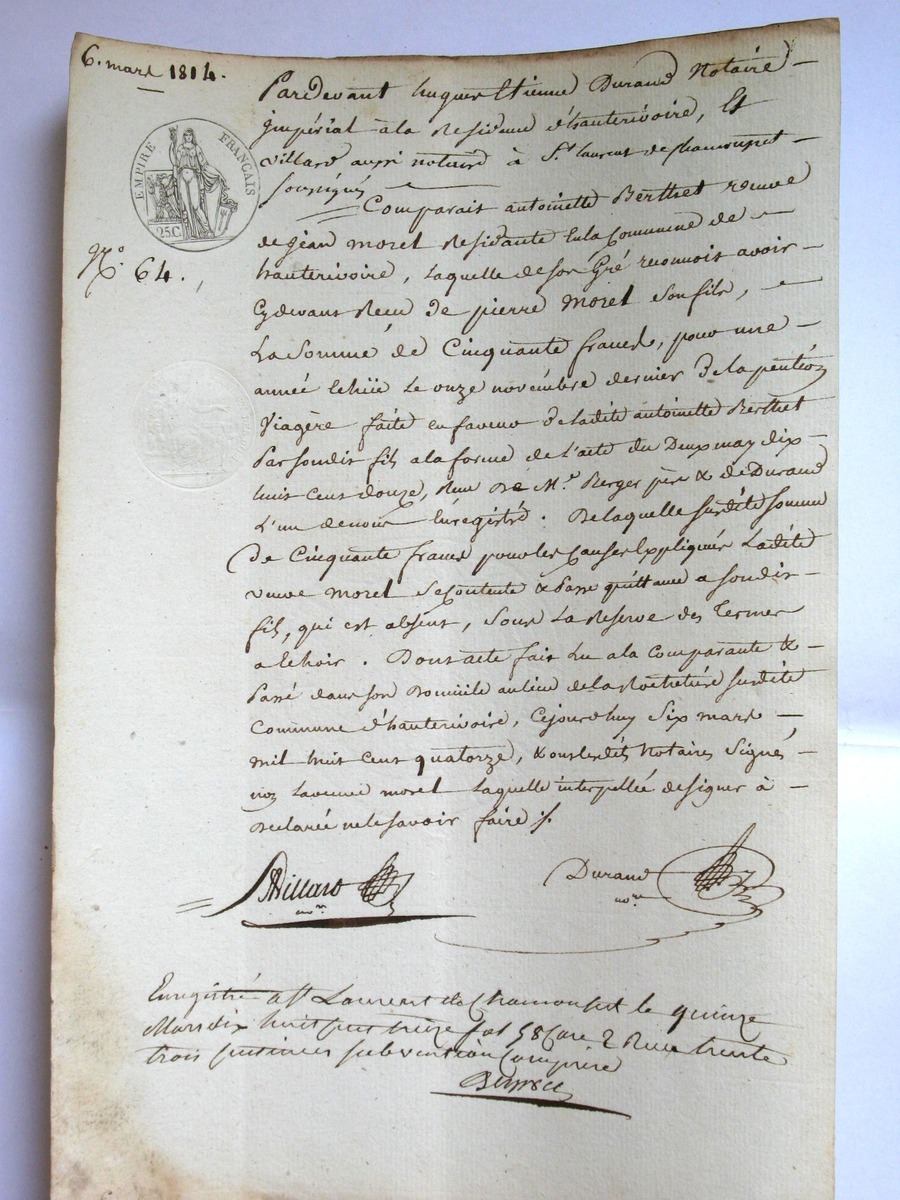 6. mars 1814.
EMPIRE FRANÇAIS
25C.
N.° 64.
Pardevant hugues Etienne Durand Notaire
impérial à la Residence d'hauterivoire, Et
villard aussi notaire à St. laurent de chamousset
soussignés
Comparait antoinette Berthet veuve
de jean morel Residante En la Commune de
hauterivoire, laquelle de son Gré reconnois avoir
Cydevant Recu de pierre Morel son fils,
La Somme de Cinquante francs, pour une
année Echüe Le onze novembre dernier de la pention
Viagère faite en faveur de ladite antoinette Berthet
Par sondit fils a la forme de l'acte du Deux may dix
huit cent douze, Recu De M.e Berger père & de Durand
L'un de nous Enregistré. De laquelle susdite somme
de Cinquante francs pour les Causes Expliqués Ladite
veuve morel se Contente & Passe quittance a sondit
fils, qui est absent, sous La Reserve des Termes
a Echoir. Dont acte fait Lu a la comparante &
Passé dans son Domicile au lieu de la susdite
Commune d'hauterivoire, Cejourdhuy Six mars
mil huit cent quatorze, & ont lesdits Notaires Signés
non La veuve morel Laquelle interpellée de signer à
Declaré ne le savoir faire ./.
Villard
no.re
Durand
no.re
Enregistré a St Laurent de Chamousset le quinze
Mars dix huit cent fol 58 Case 2 Recu trente
trois centimes subvention Comprise